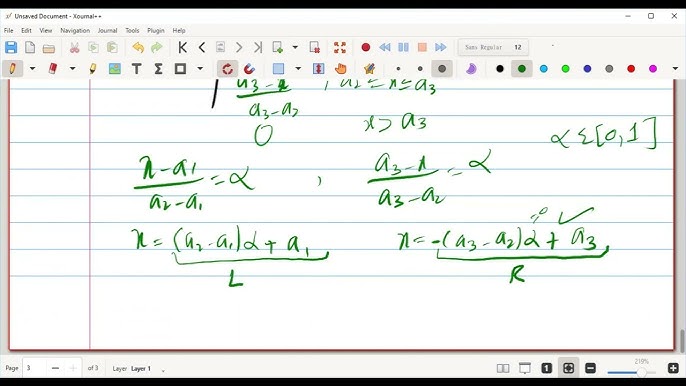 Unsaved Document - Xournal++
File Edit View Navigation Journal Tools Plugin Help
Sans Regular 12
a₃-x / a₃-a₂ , a₂ ≤ x ≤ a₃
0 x > a₃
α ε [0,1]
x-a₁ / a₂-a₁ = α , a₃-x / a₃-a₂ = α
x = (a₂-a₁)α + a₁ x = -(a₃-a₂)α + a₃
L R
Page 3 of 3 Layer Layer 1 219%